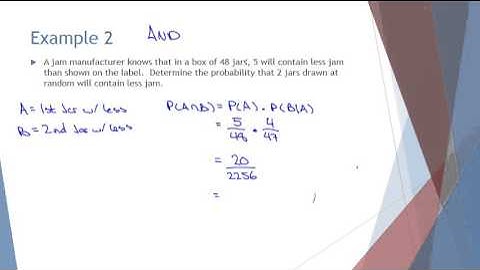 Example 2 AND
A jam manufacturer knows that in a box of 48 jars, 5 will contain less jam
than shown on the label. Determine the probability that 2 jars drawn at
random will contain less jam.
A = 1st Jar w/ less
B = 2nd Jar w/ less
P(A∩B) = P(A) · P(B|A)
= 5/48 · 4/47
= 20/2256
=